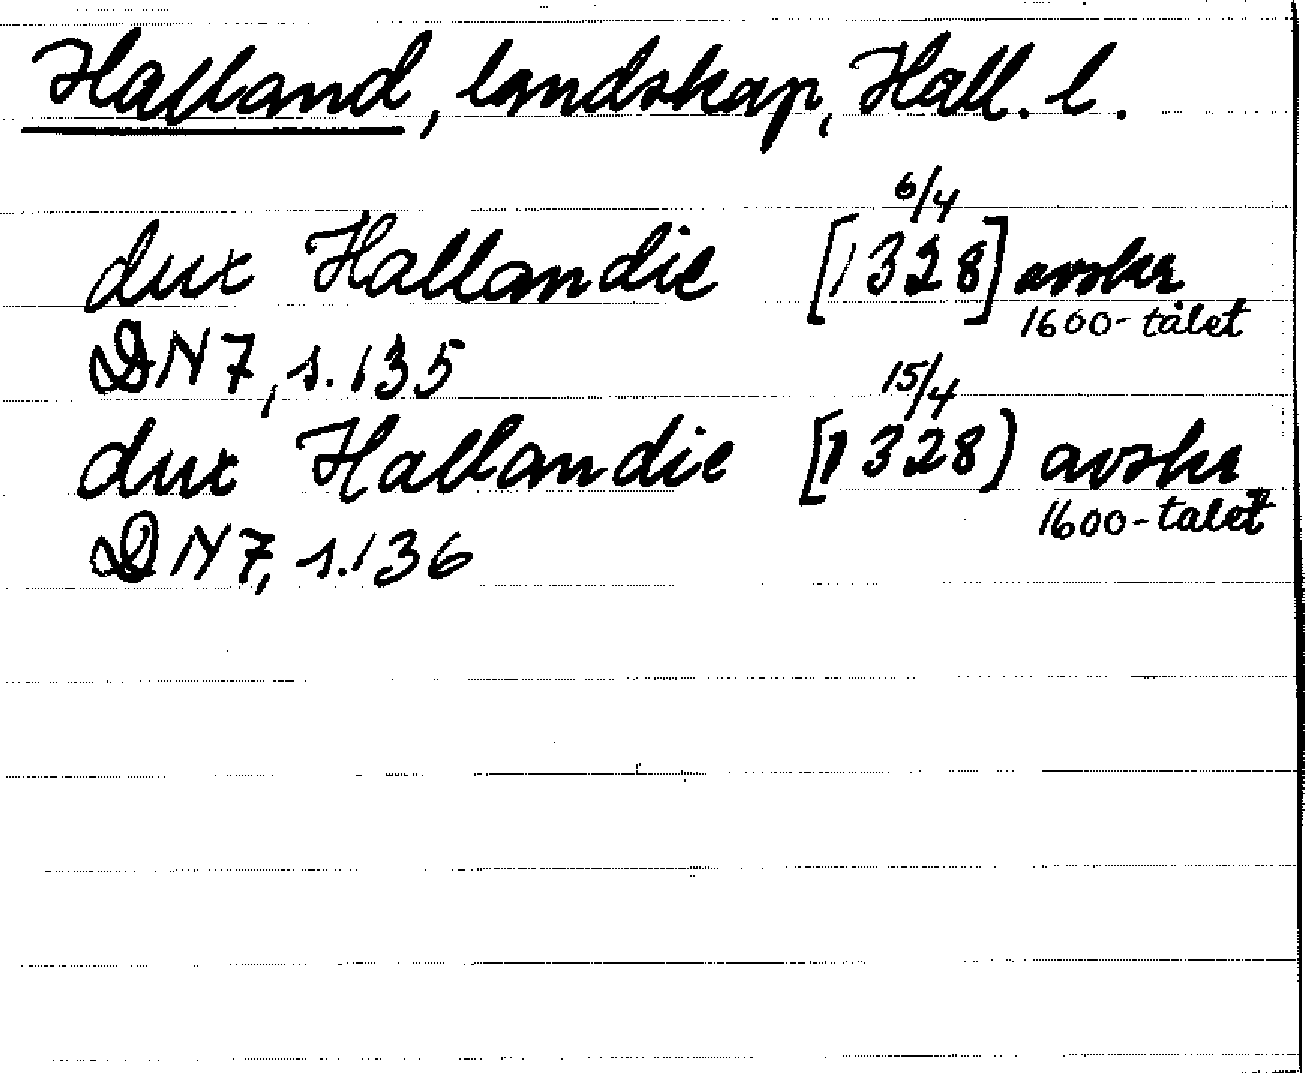 Halland, landskap, Hall. l.
dux Hallandie [1328] 6/4 avskr
1600-talet
DN 7, s. 135
dux Hallandie [1328) 15/4 avskr
1600-talet
DN 7, s. 136